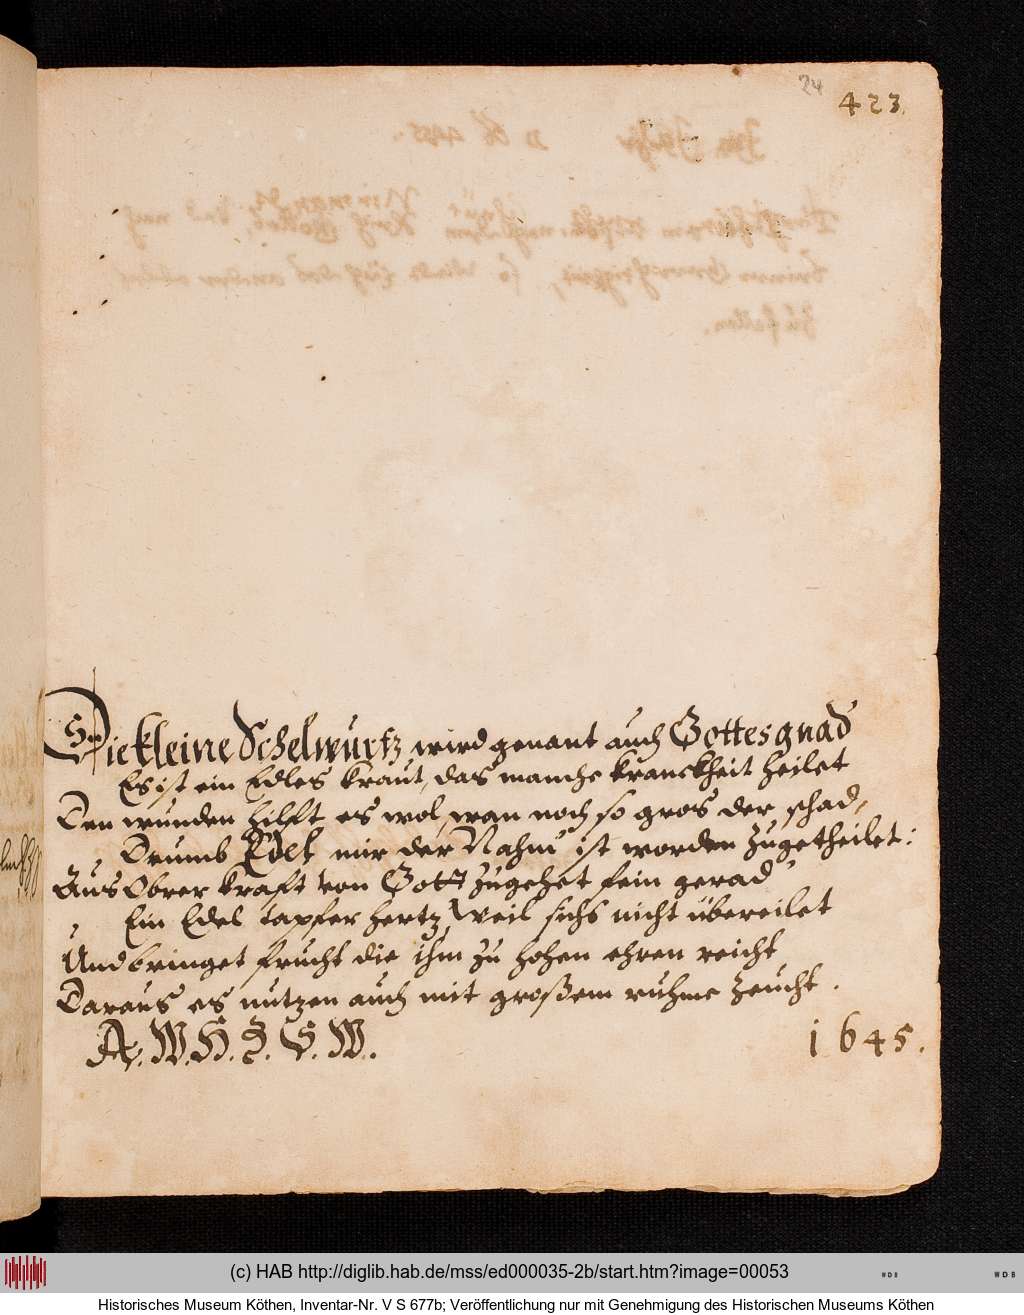 24
423.
Die kleine Schelwurtz wird genant auch Gottesgnad
Es ist ein Edles kraut, das manche kranckheit heilet
Den wunden hilfft es wol, wan noch so gros der schad,
Drumb Edel mir der Nahm ist worden zugetheilet:
Aus Obrer kraft von Gott zugehet fein gerad
Ein Edel tapfer hertz, Weil sichs nicht übereilet
Und bringet frucht die ihm zu hohen ehren reicht
Daraus es nutzen auch mit großem ruhme zeucht.
A. W. H. Z. S. W.
1645.
(c) HAB http://diglib.hab.de/mss/ed000035-2b/start.htm?image=00053
WDB
WDB
Historisches Museum Köthen, Inventar-Nr. V S 677b; Veröffentlichung nur mit Genehmigung des Historischen Museums Köthen